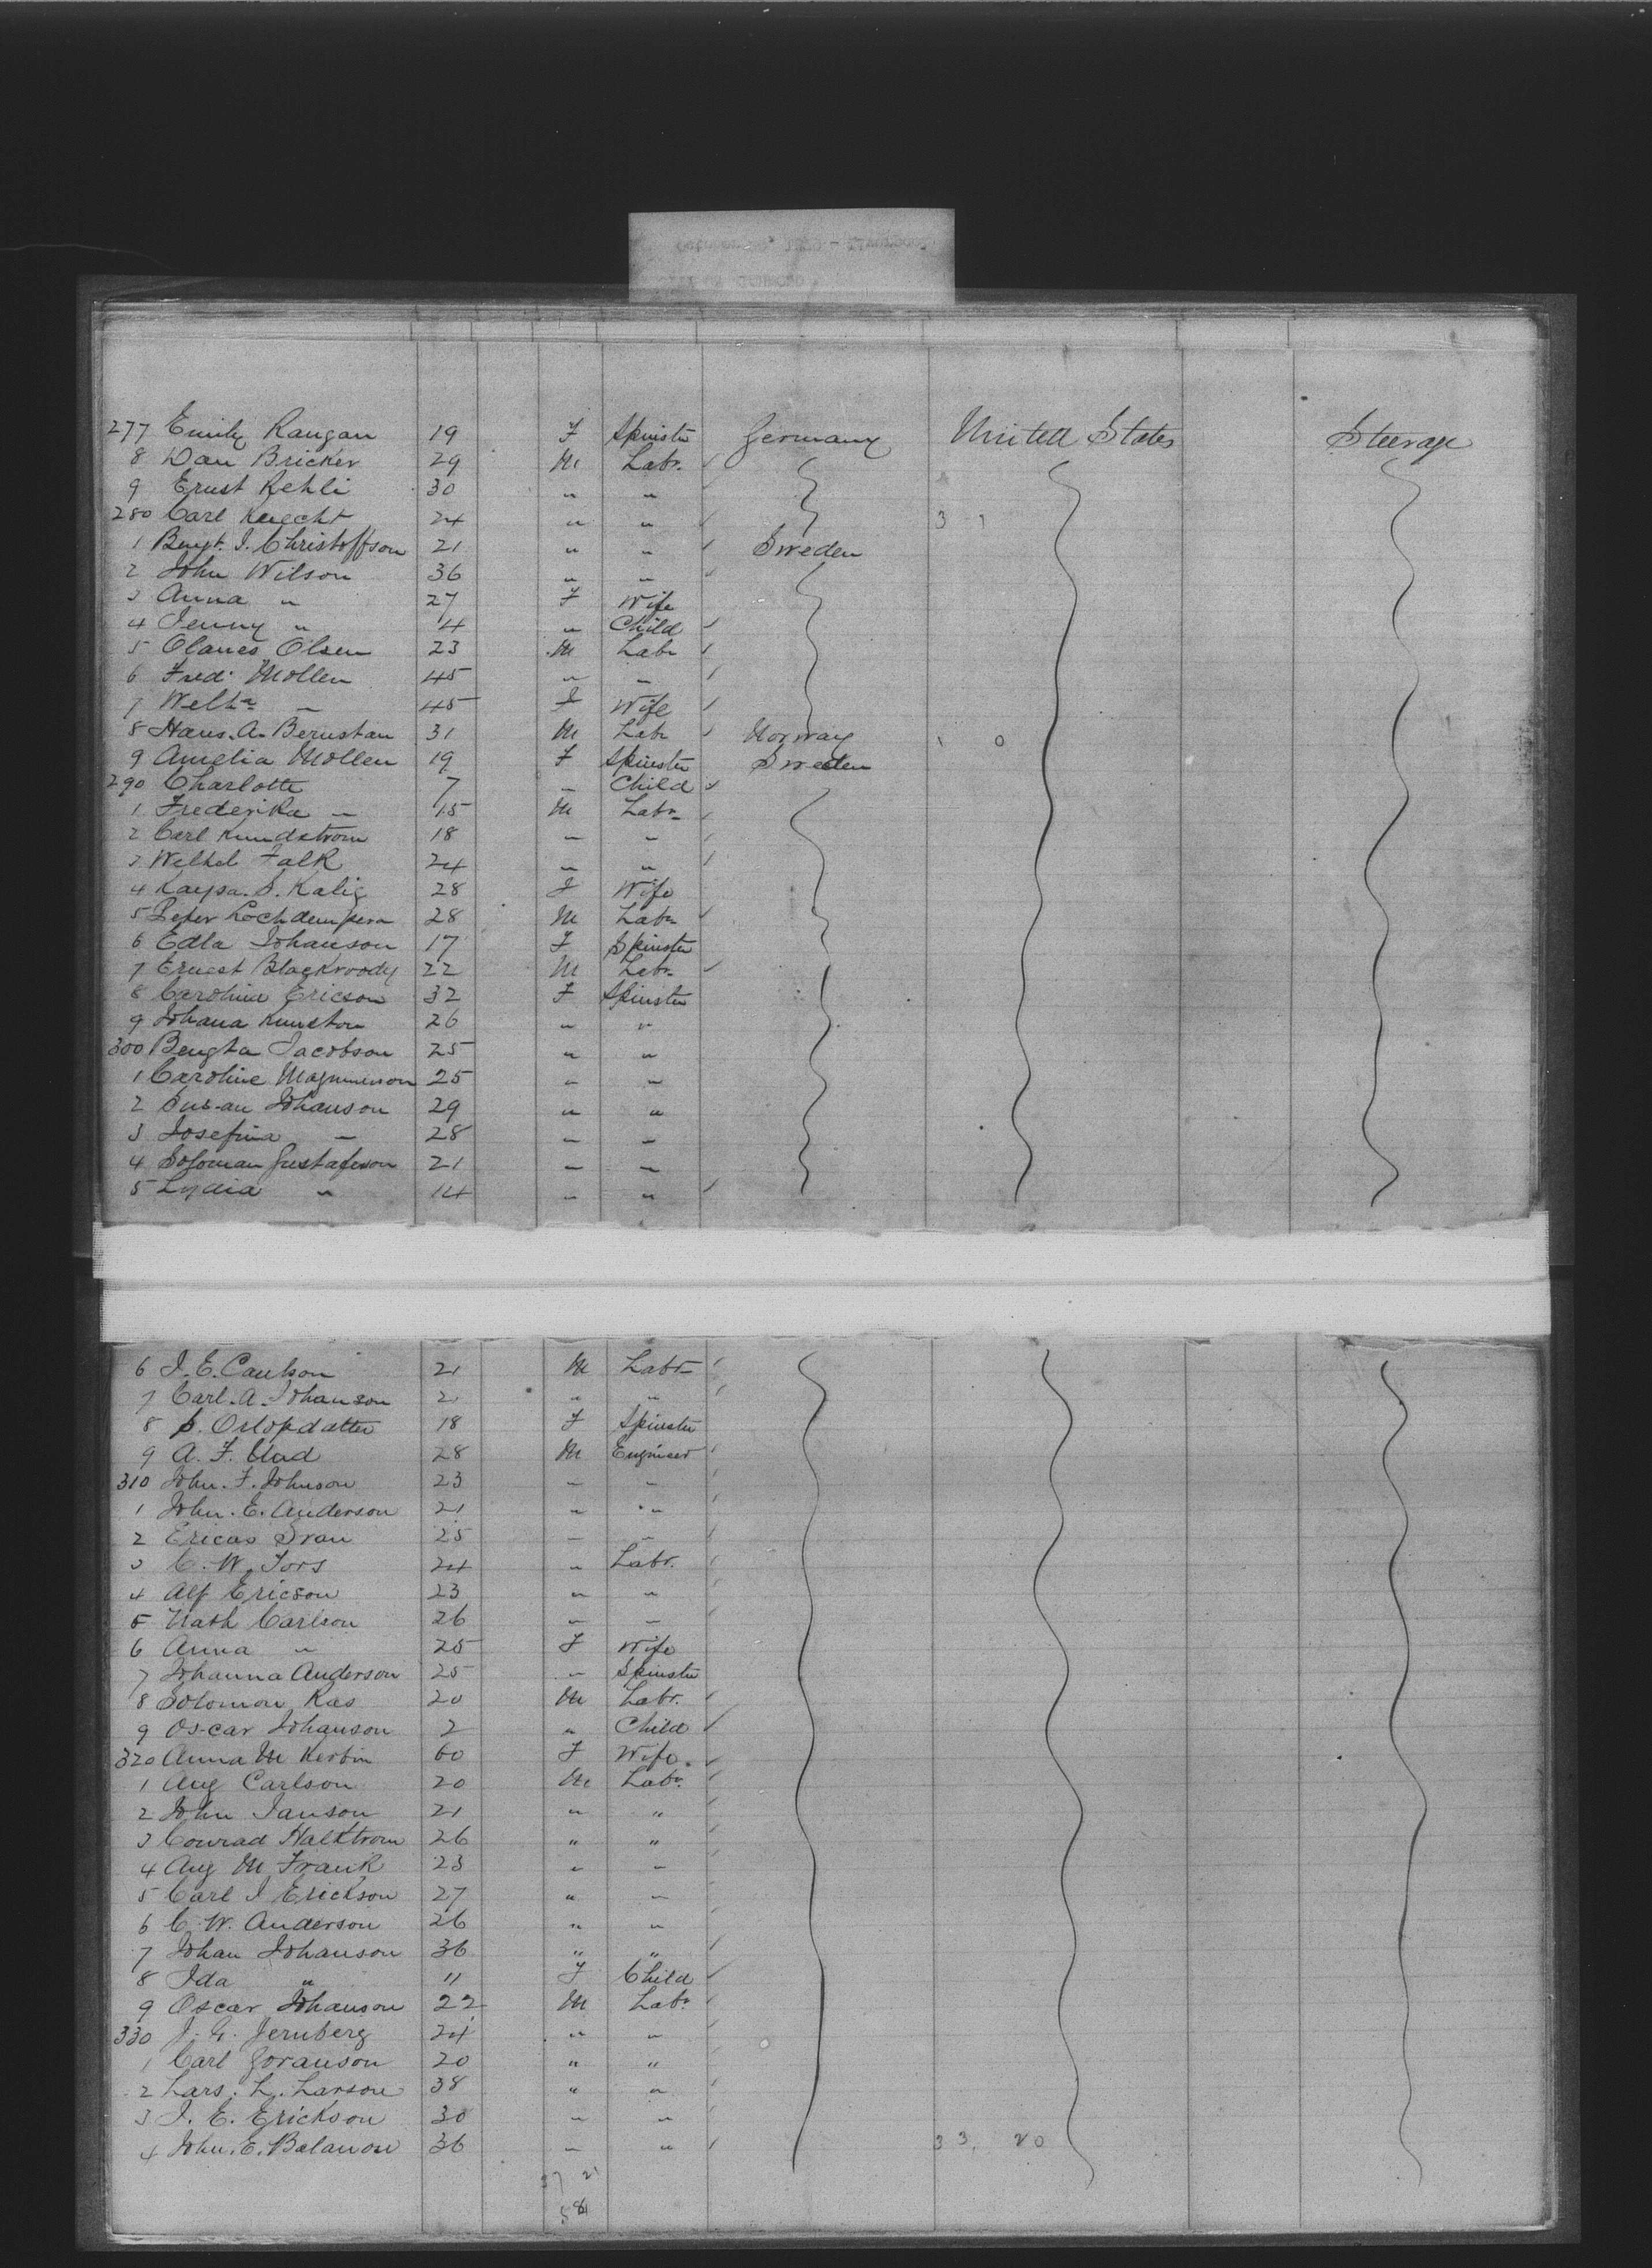 277 Emily Rangan 19 F Spinster Germany United States Steerage
8 Dan Bricker 29 M Labr.
9 Ernst Kehli 30 " "
280 Carl Knecht 24 " " 3 1
1 Bengt. J. Christoffson 21 " " Sweden
2 John Wilson 36 " "
3 Anna " 27 F Wife
4 Jenny " 4 " Child
5 Olanes Olsen 23 M Labr
6 Fred. Mollen 45 " "
7 45 F Wife
8 Hans. A. Bernstan 31 M Labr Norway 1 0
9 Amelia Mollen 19 F Spinster Sweden
290 Charlotte 7 " Child
1 Frederika " 15 M Labr
2 Carl 18 " "
3 Falk 24 " "
4 Kaysa. S. Kalig 28 F Wife
5 Peter 28 M Labr
6 Edla Johanson 17 F Spinster
7 Ernest 22 M Labr
8 Carolina Ericson 32 F Spinster
9 Johana 26 " "
300 Bengta Jacobson 25 " "
1 Caroline Magnuneson 25 " "
2 Susan Johanson 29 " "
3 Josefina " 28 " "
4 Soloman Gustafeson 21 " "
5 Lydia " 14 " "
6 J. E. Caulson 21 M Labr
7 Carl. A. Johanson 2 " "
8 S. 18 F Spinster
9 A. F. 28 M Engineer
310 John. F. Johnson 23 " "
1 John. E. Anderson 21 " "
2 Ericas Svan 25 " "
3 C. W. Fors 24 " Labr.
4 Alf Ericson 23 " "
5 Nath Carlson 26 " "
6 Anna " 25 F Wife
7 Johanna Anderson 25 " Spinster
8 Solomon Kas 20 M Labr.
9 Oscar Johanson 2 " Child
320 Anna M Kerbin 60 F Wife
1 Aug Carlson 20 M Labr
2 John Janson 21 " "
3 Conrad Halktrom 26 " "
4 Aug M Frank 23 " "
5 Carl J Erickson 27 " "
6 C. W. Anderson 26 " "
7 Johan Johanson 36 " "
8 Ida " 11 F Child
9 Oscar Johanson 22 M Labr
330 J. G. Jernberg 24 " "
1 Carl Joranson 20 " "
2 Lars. L. Larson 38 " "
3 J. E. Erickson 30 " "
4 John. E. Balanon 36 " " 33, 20
37 21
58